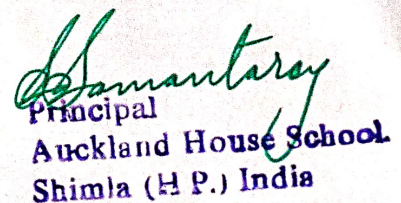 S. Samantaray
Principal
Auckland House School
Shimla (H P.) India